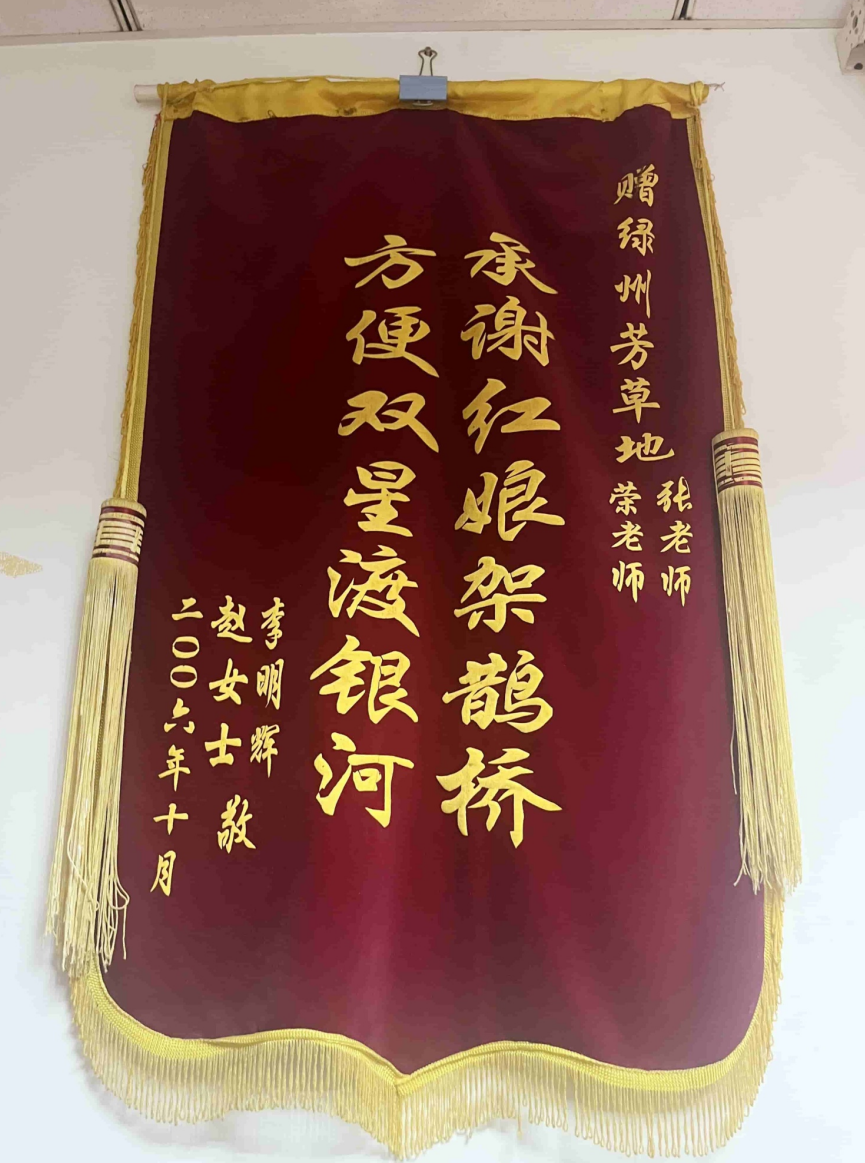 赠绿州芳草地
张老师
荣老师
承谢红娘架鹊桥
方便双星渡银河
李明辉
赵女士 敬
二〇〇六年十月